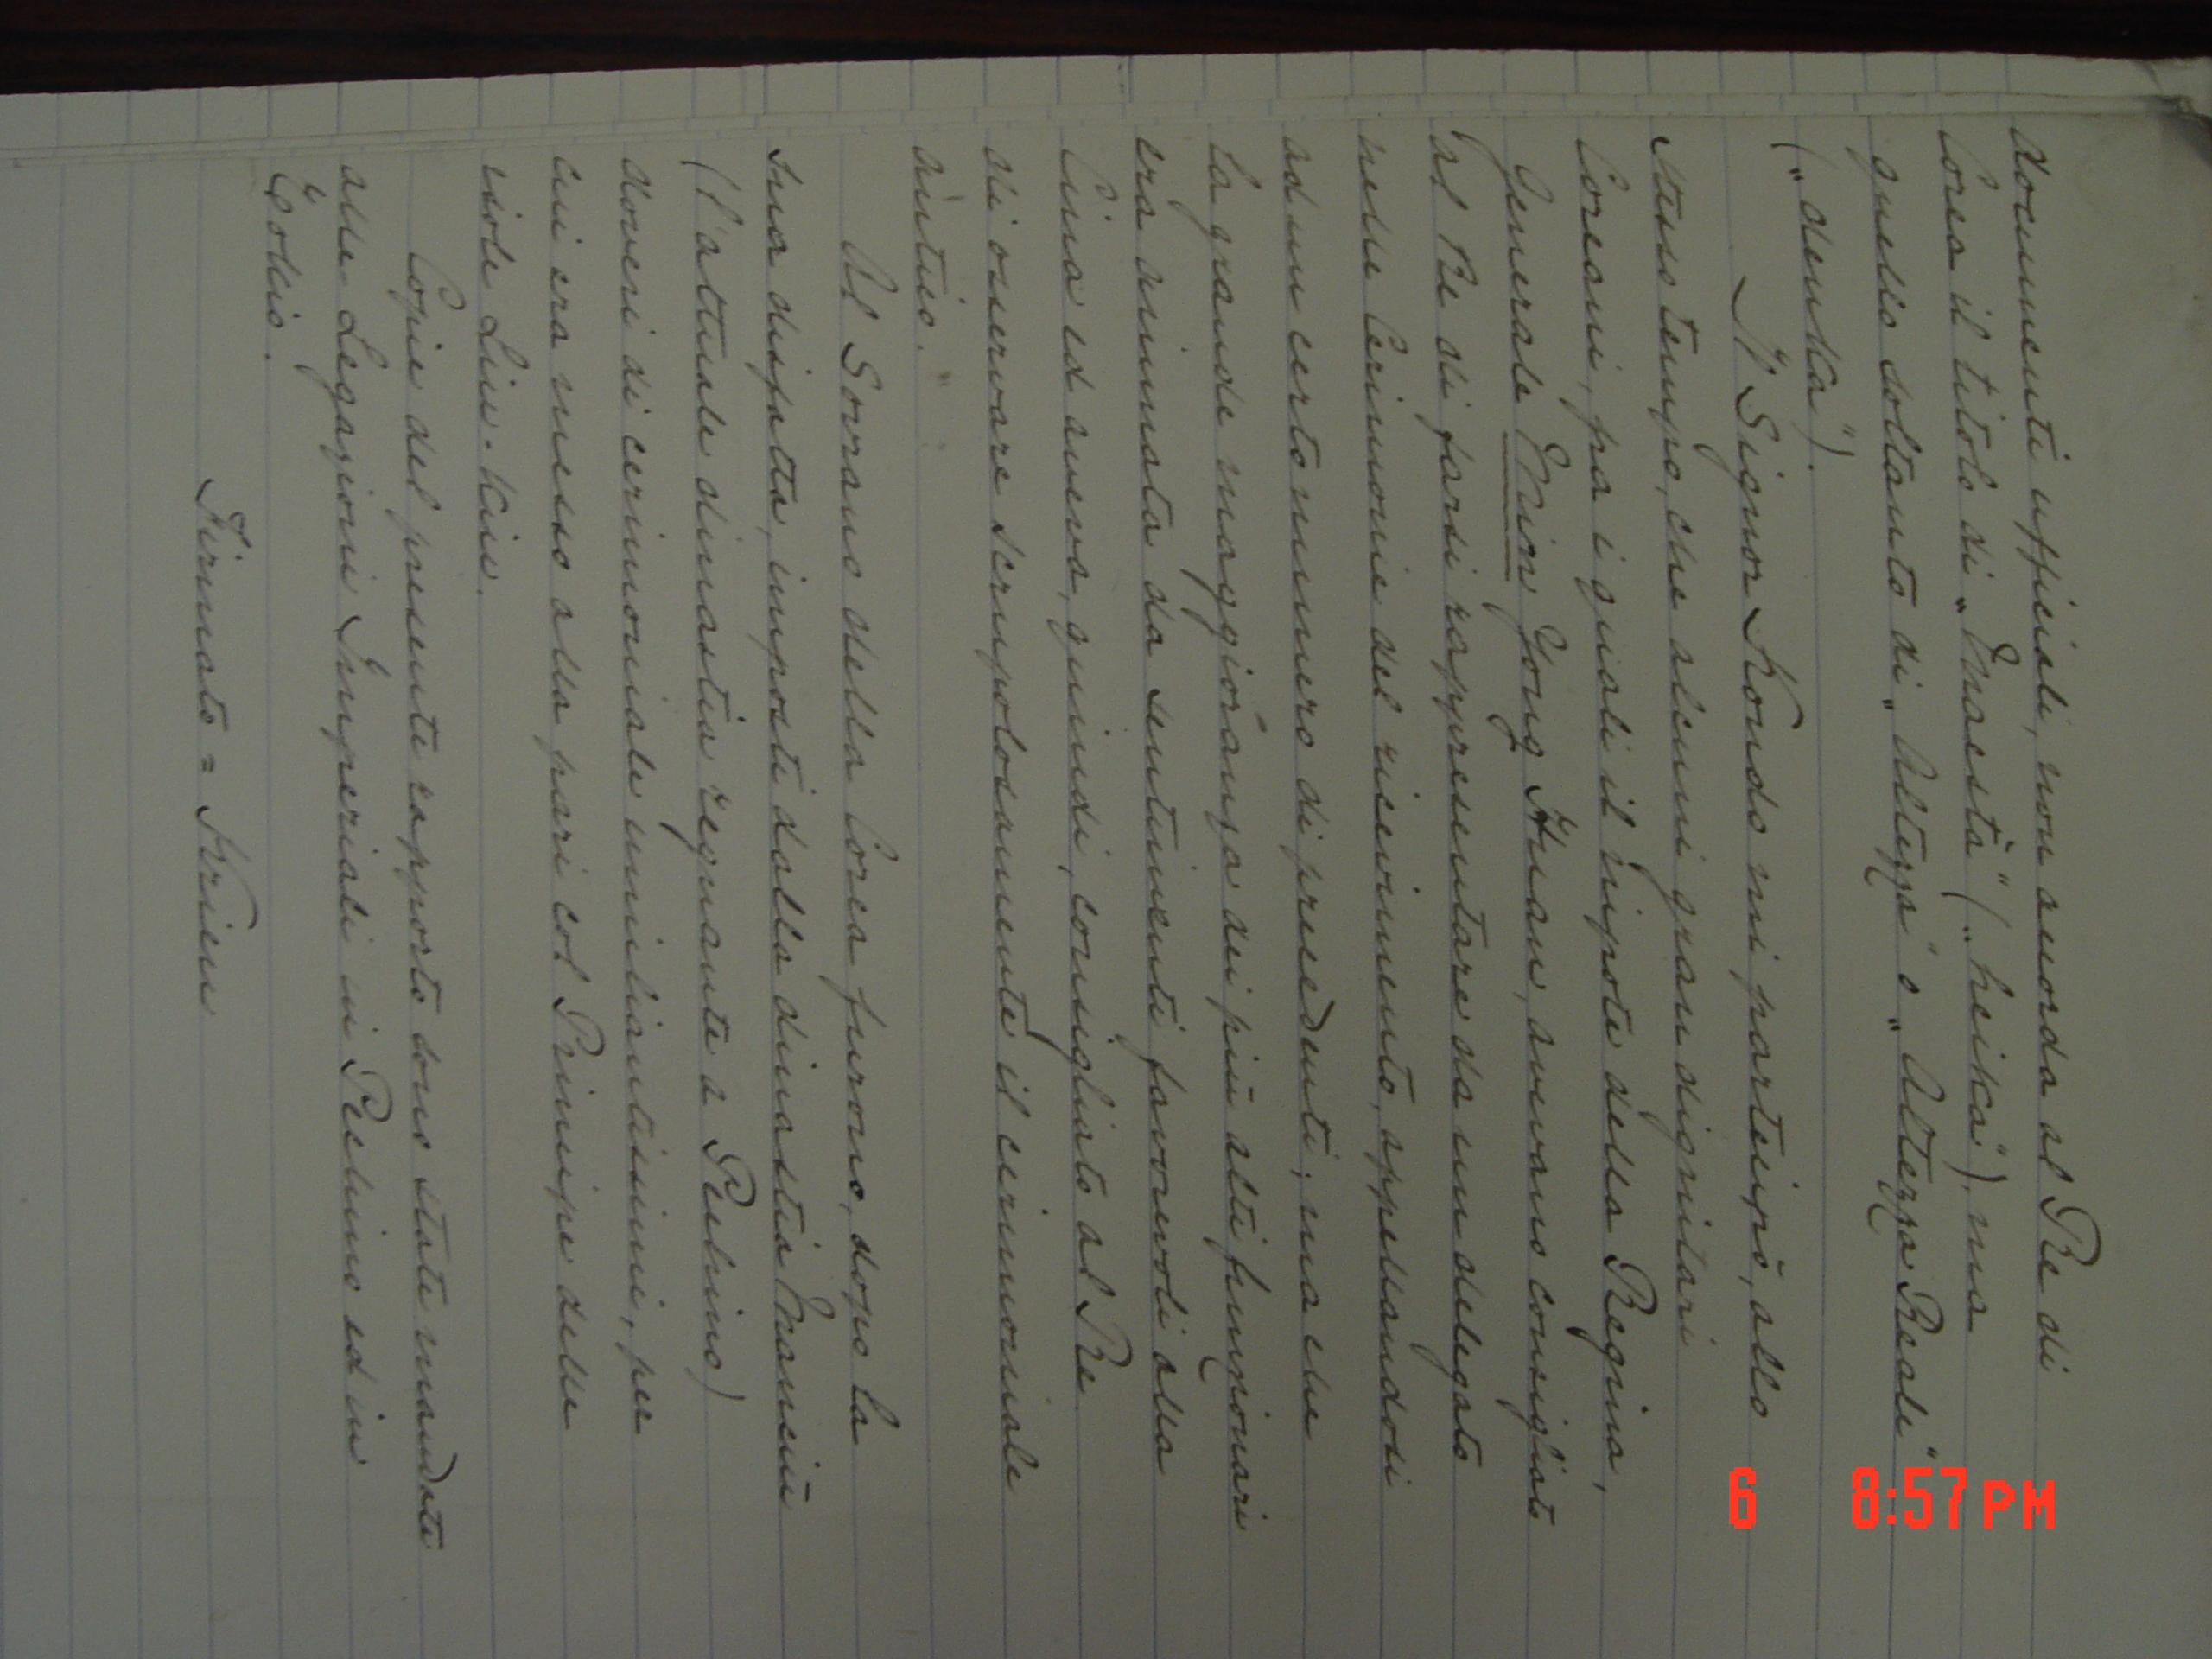 documenti ufficiali, non accorda al Re di
Corea il titolo di „Maestà” („heika”), ma
quello soltanto di „Altezza” o „Altezza Reale”
(„denka”).
Il Signor Kondo mi partecipò, allo
stesso tempo, che alcuni gran dignitari
Coreani, fra i quali il nipote della Regina,
Generale Min Yong Huan, avevano consigliato
al Re di farsi rappresentare da un delegato
nelle Cerimonie del ricevimento, appellandosi
ad un certo numero di precedenti; ma che
la grande maggioranza dei più alti funzionari
era animata da sentimenti favorevoli alla
Cina ed aveva, quindi, consigliato al Re
di osservare scrupolosamente il cerimoniale
antico.
Al Sovrano della Corea furono, dopo la
sua disfatta, imposti dalla dinastia Manciù
(l'attuale dinastia regnante a Pechino)
doveri di cerimoniale umiliantissimi, per
cui era messo alla pari col Principe delle
isole Liu-Kiu.
Copie del presente rapporto sono state mandate
alle Legazioni Imperiali in Pechino ed in
Tokio.
Firmato = Krien
6 8:57 PM